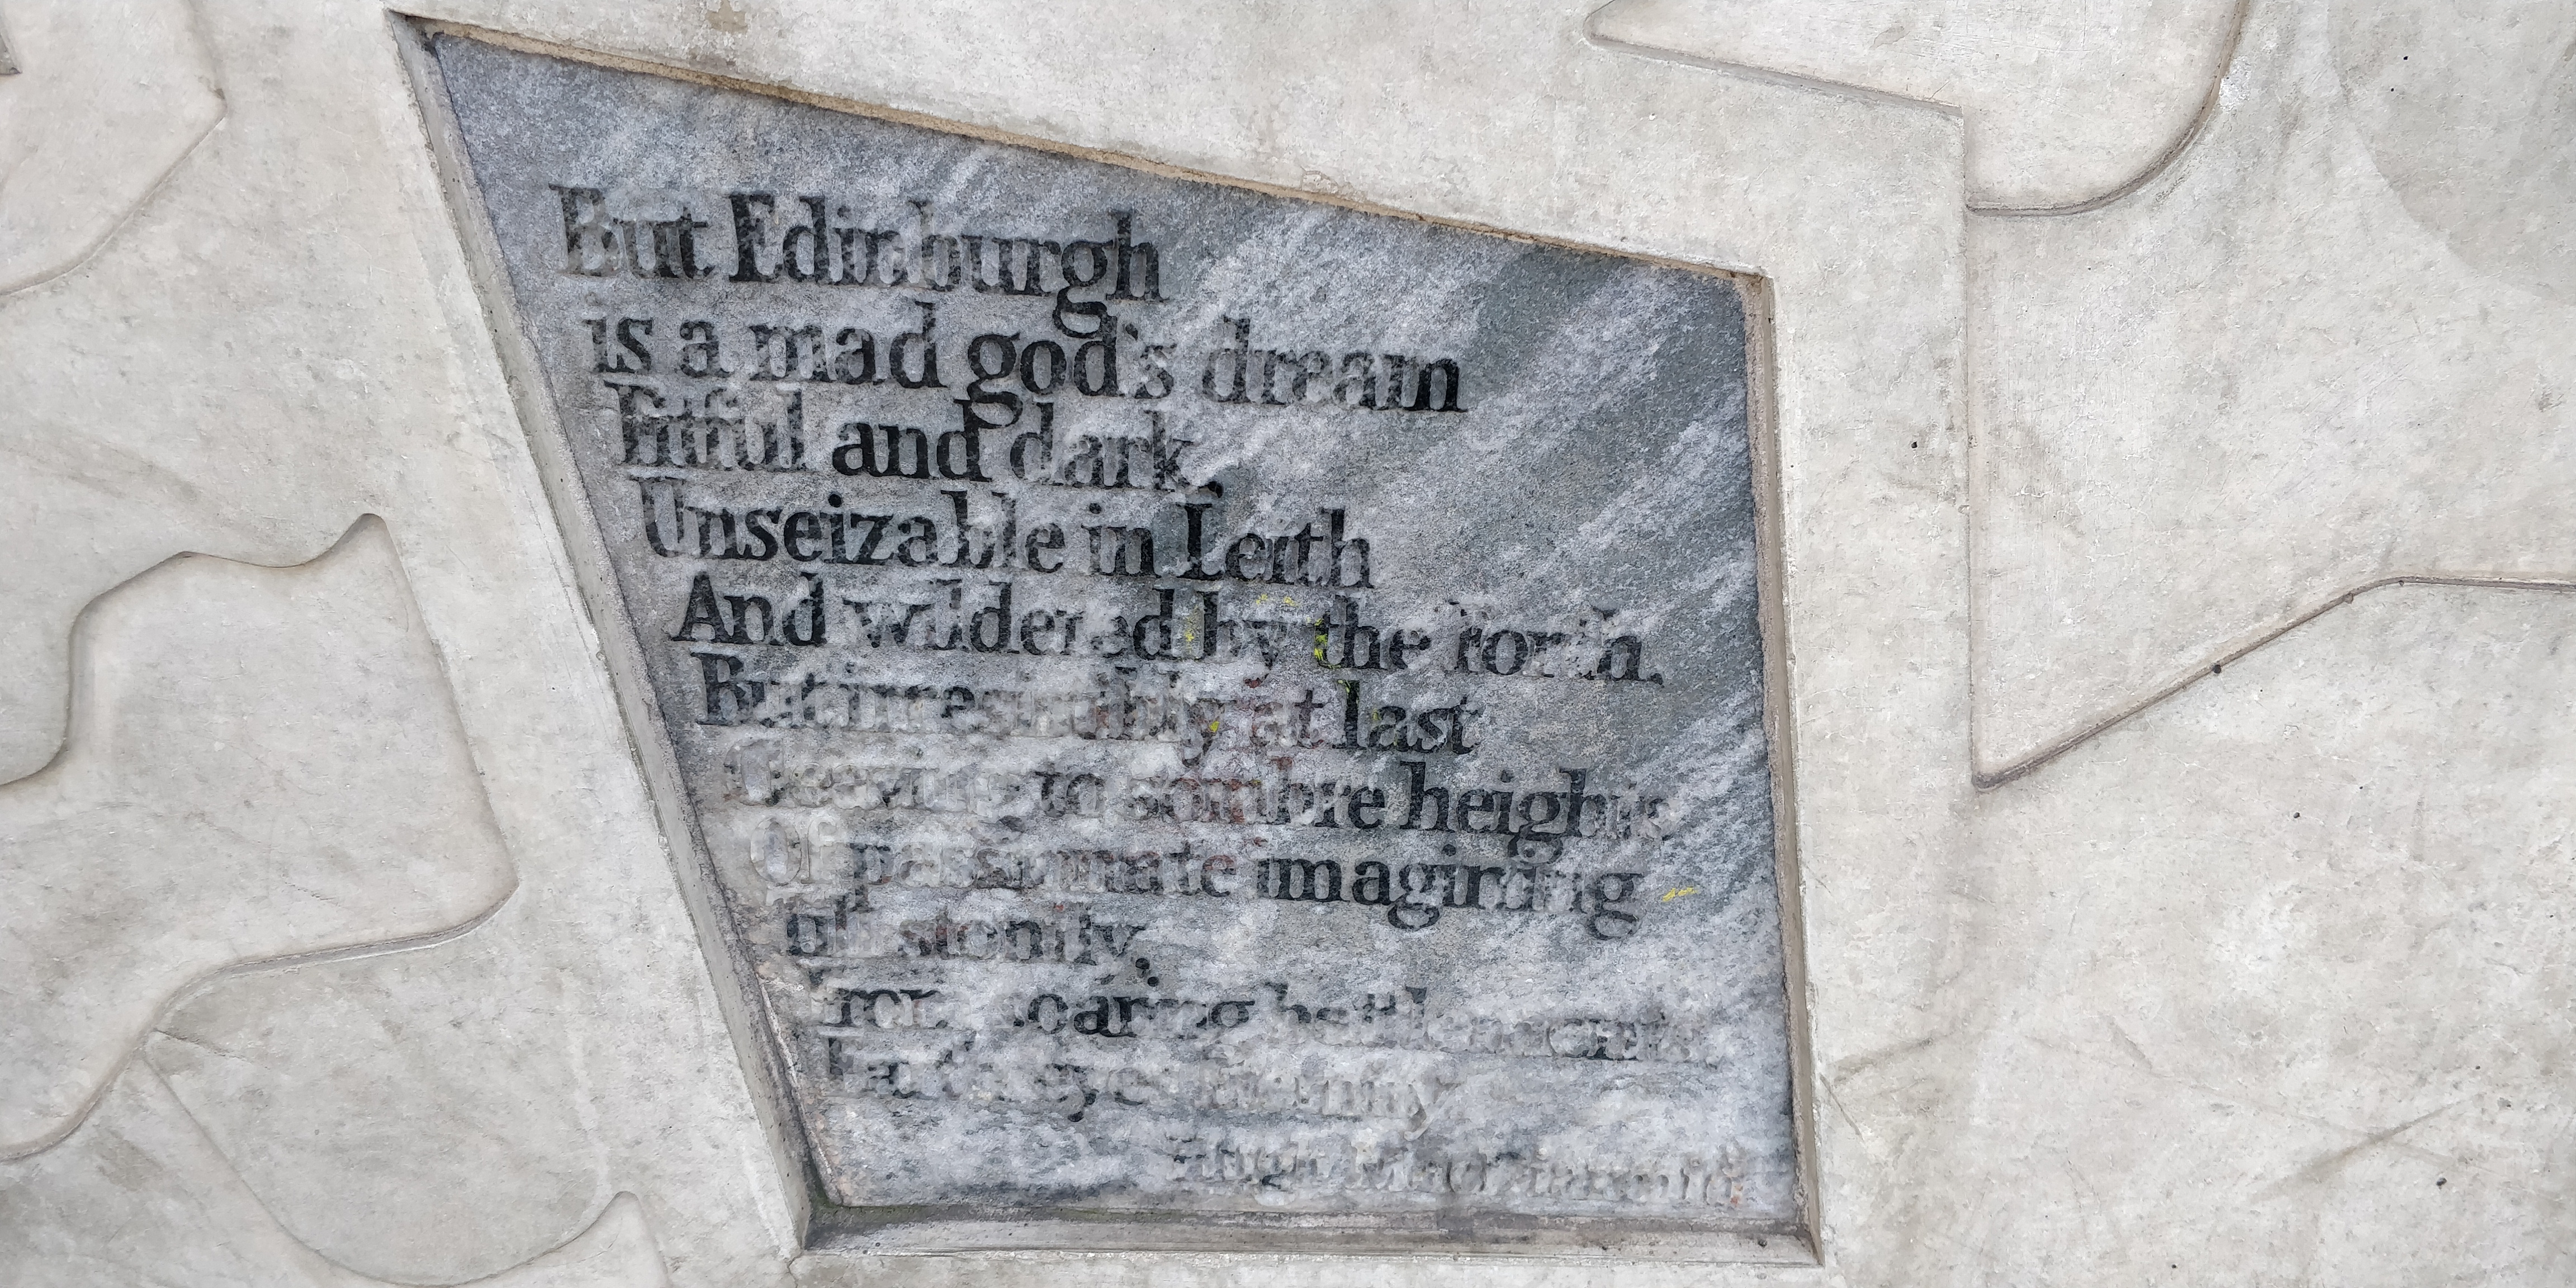 But Edinburgh
is a mad god's dream
Fitful and dark,
Unseizable in Leith
And wildered by the Forth,
But irresistibly at last
Cleaving to sombre heights
Of passionate imagining
till stonily,
From soaring battlements,
Earth eyes Eternity
Hugh MacDiarmid